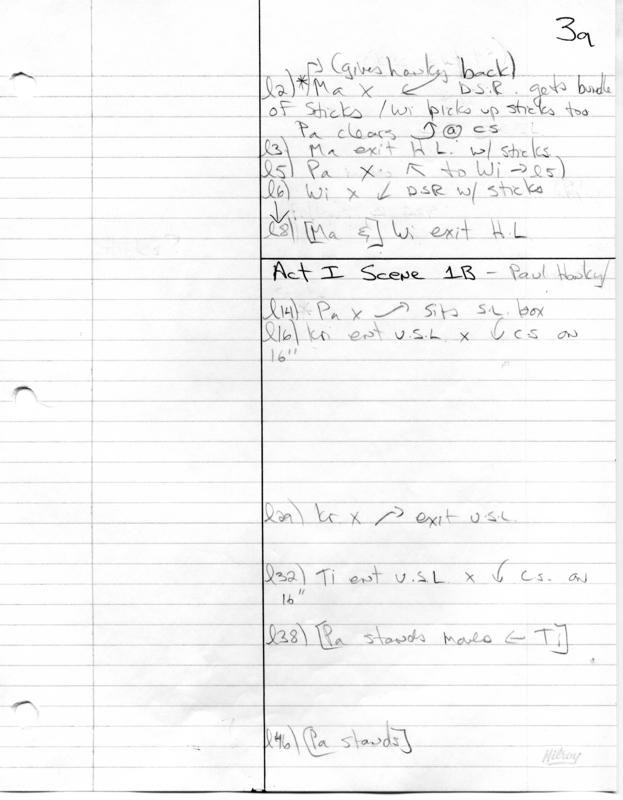 3a
(gives hanky back)
l2) *Ma x ↙ D.S.R. gets bundle
of sticks / Wi picks up sticks too
Pa clears ⤴ @ cs
l3) Ma exit H.L. w/ sticks
l5) Pa x ↖ to Wi → l5)
l6) Wi x ↙ DSR w/ sticks
↓
l8) [Ma &] Wi exit H.L
Act I Scene 1B - Paul Hanky/
l14) Pa x ↗ sits s.L. box
l16) Kri ent U.S.L. x ↓ C.S on
16"
l29) Kr x ↗ exit U.S.L.
l32) Ti ent U.S.L. x ↓ C.S. on
16"
l38) [Pa stands moves ← Ti]
l46) [Pa stands]
Hilroy